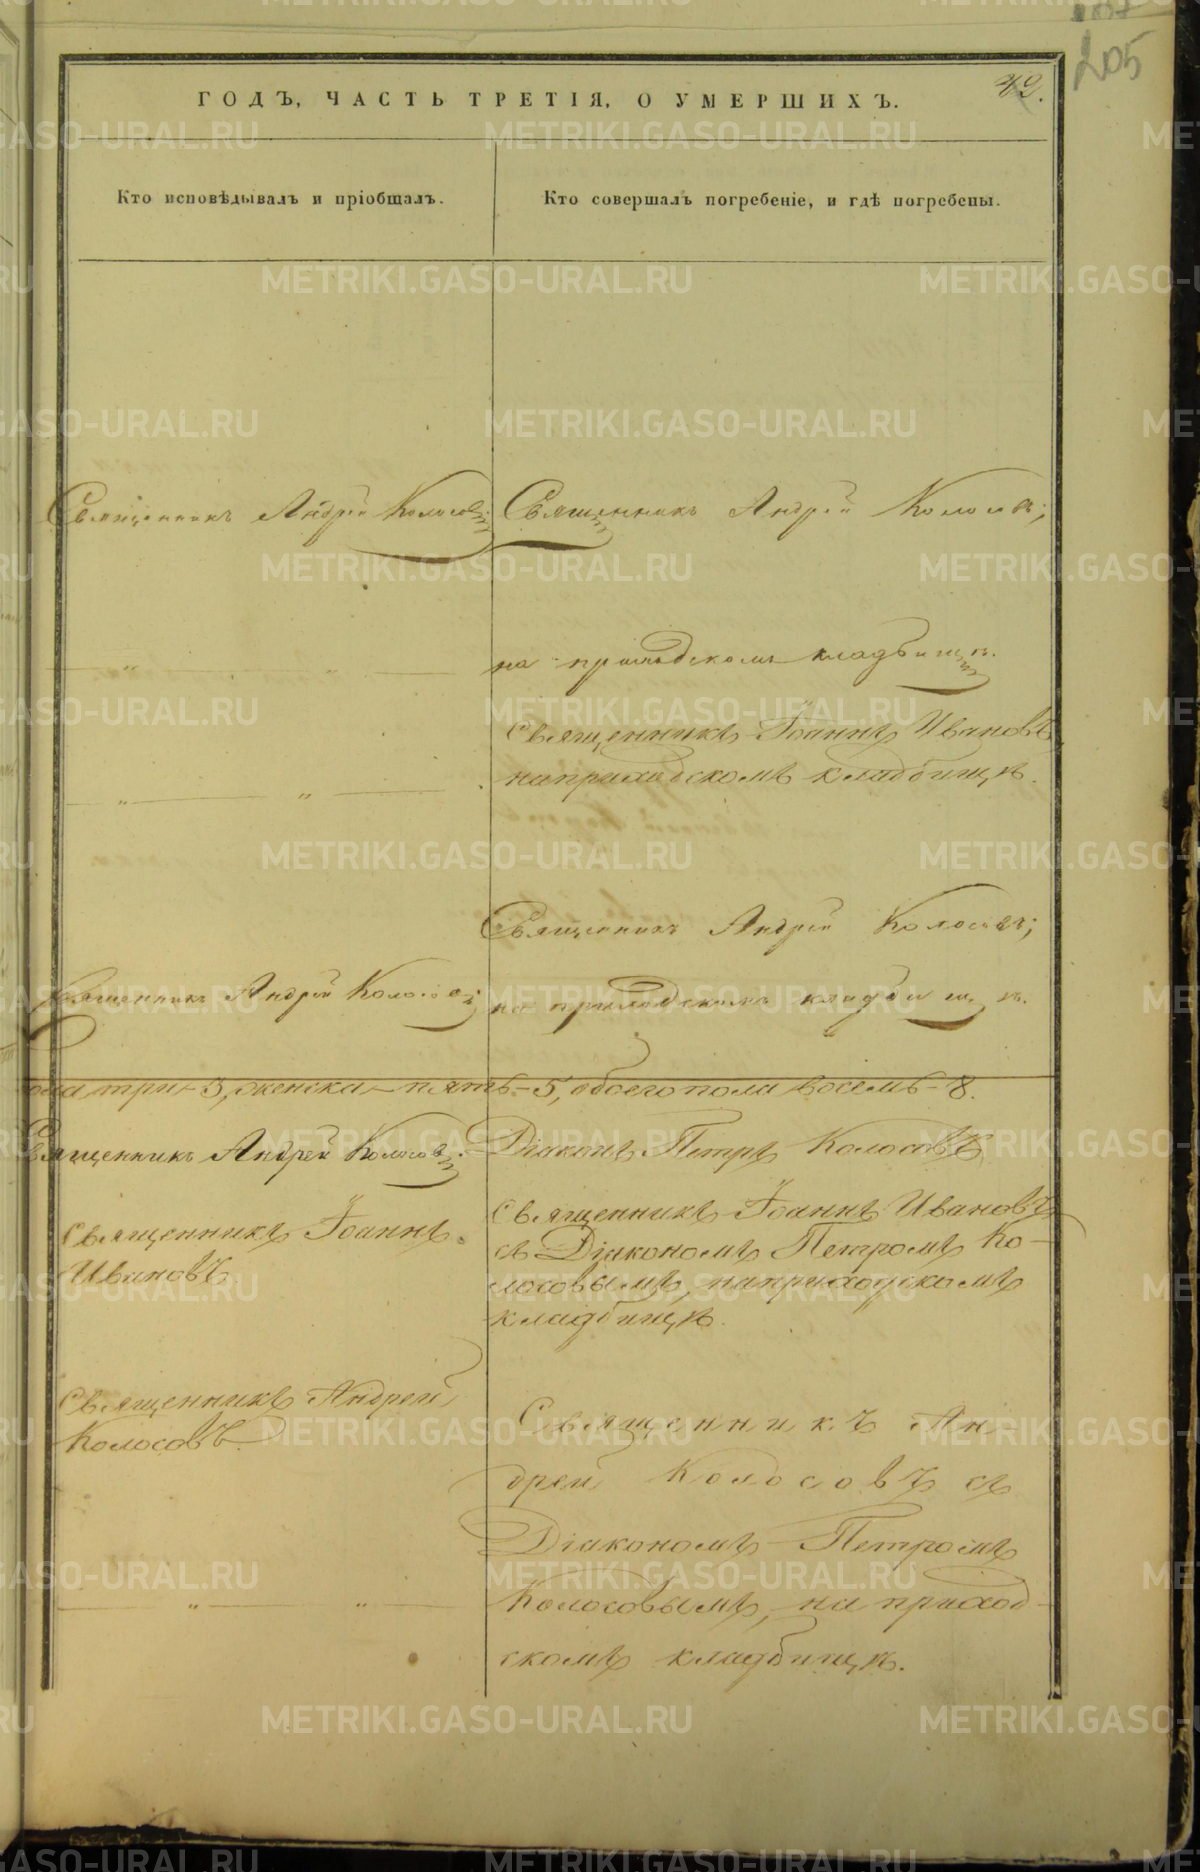 205
42.
ГОДЪ, ЧАСТЬ ТРЕТІЯ, О УМЕРШИХЪ.
Кто исповѣдывалъ и пріобщалъ.
Кто совершалъ погребеніе, и гдѣ погребены.
Священникъ Андрей Колосовъ.
Священникъ Андрей Колосовъ;
на приходскомъ кладбищѣ.
Священникъ Іоаннъ Ивановъ
на приходскомъ кладбищѣ.
Священникъ Андрей Колосовъ;
Священникъ Андрей Колосовъ;
на приходскомъ кладбищѣ.
три - 3, женска - пять - 5, обоего пола восемь - 8.
Священникъ Андрей Колосовъ.
Діаконъ Петръ Колосовъ
Священникъ Іоаннъ
Ивановъ.
Священникъ Іоаннъ Ивановъ
съ Діакономъ Петромъ Ко-
лосовымъ, на приходскомъ
кладбищѣ.
Священникъ Андрей
Колосовъ.
Священникъ Ан-
дрей Колосовъ съ
Діакономъ Петромъ
Колосовымъ, на приход-
скомъ кладбищѣ.
METRIKI.GASO-URAL.RU